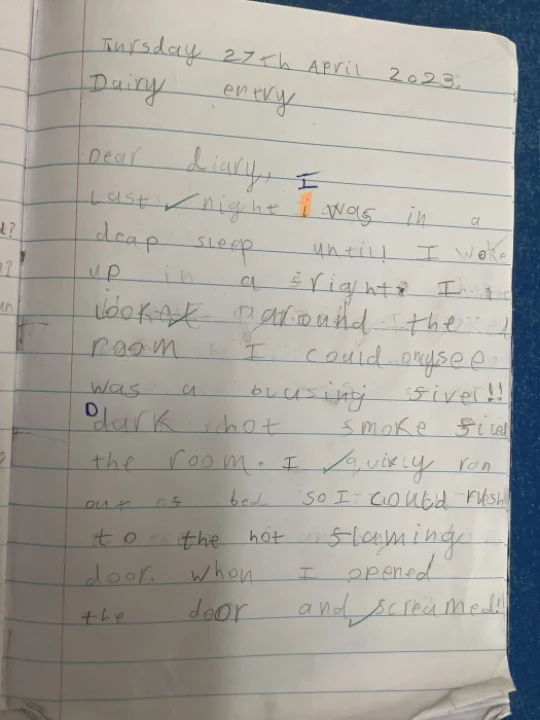 Tursday 27th April 2023.
Dairy entry
Dear diary, I
Last night i was in a
deap sleep until I woke
up in a fright. I
look around the
room I could onysee
was a blasing fire!!
D dark hot smoke filed
the room. I quicly ran
out of bed so I could rush
to the hot flaming
door. When I opened
the door and screamed!!